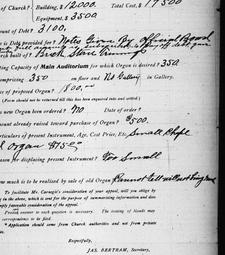 of Church? Building, $12000. Total Cost, $17500
Equipment, $3500.
Amount of Debt? 3100.
is Debt provided for? Notes Given By Official Board
Church built of? Brick Stone
ting Capacity of Main Auditorium for which Organ is desired? 350
comprising 350 on floor and No Gallery in Gallery.
e of proposed Organ? 1800.00
(Form should not be returned till this has been enquired into and settled.)
new Organ been ordered? No Date of order?
ount already raised toward purchase of Organ? $500.
articulars of present Instrument, Age, Cost Price, Etc. Small
Organ $75.00
eason for displacing present Instrument? Too Small
ow much is to be realised by sale of old Organ Cannot tell
To facilitate Mr. Carnegie's consideration of your appeal, will you oblige by
in the above, which is sent for the purpose of summarizing information and does
imply favorable consideration of the appeal.
Precise answer to each question is necessary. The
correspondence to be filed.
Application should come from Church authorities and not from private
Respectfully,
JAS. BERTRAM, Secretary,